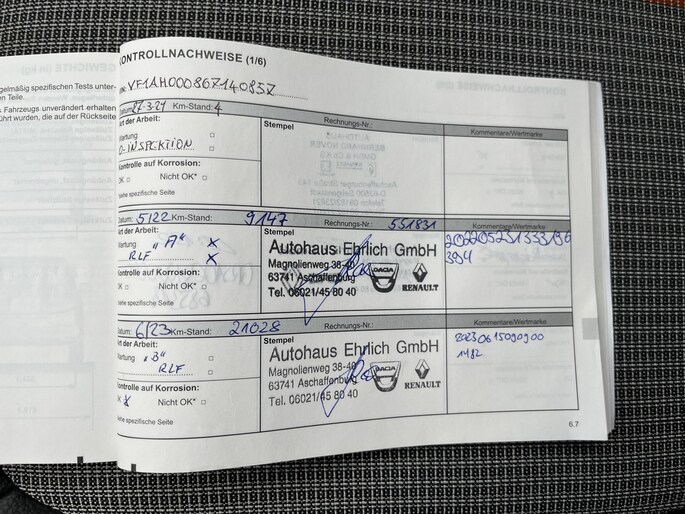 GEWICHTE (in kg)
gelmäßig spezifischen Tests unter-
en Teile.
Fahrzeugs unverändert erhalten
führt wurden, die auf der Rückseite
KONTROLLNACHWEISE (1/6)
VF1AH000867140857
Datum: 27-3-21 Km-Stand: 4 Rechnungs-Nr.: Kommentare/Wertmarke
Art der Arbeit: Stempel
Wartung
0-INSPEKTION
Kontrolle auf Korrosion:
OK Nicht OK*
siehe spezifische Seite
Datum: 5/22 Km-Stand: 9147 Rechnungs-Nr.: 551831 Kommentare/Wertmarke
Art der Arbeit: Stempel
Wartung "A" X
RLF X
Autohaus Ehrlich GmbH
Magnolienweg 38-40
63741 Aschaffenburg
Tel. 06021/45 80 40
DACIA RENAULT
Kontrolle auf Korrosion:
OK Nicht OK*
siehe spezifische Seite
Datum: 6/23 Km-Stand: 21028 Rechnungs-Nr.: Kommentare/Wertmarke
Art der Arbeit: Stempel
Wartung "B"
RLF
Autohaus Ehrlich GmbH
Magnolienweg 38-40
63741 Aschaffenburg
Tel. 06021/45 80 40
DACIA RENAULT
20230615090900
1482
Kontrolle auf Korrosion:
OK X Nicht OK*
siehe spezifische Seite
6.7